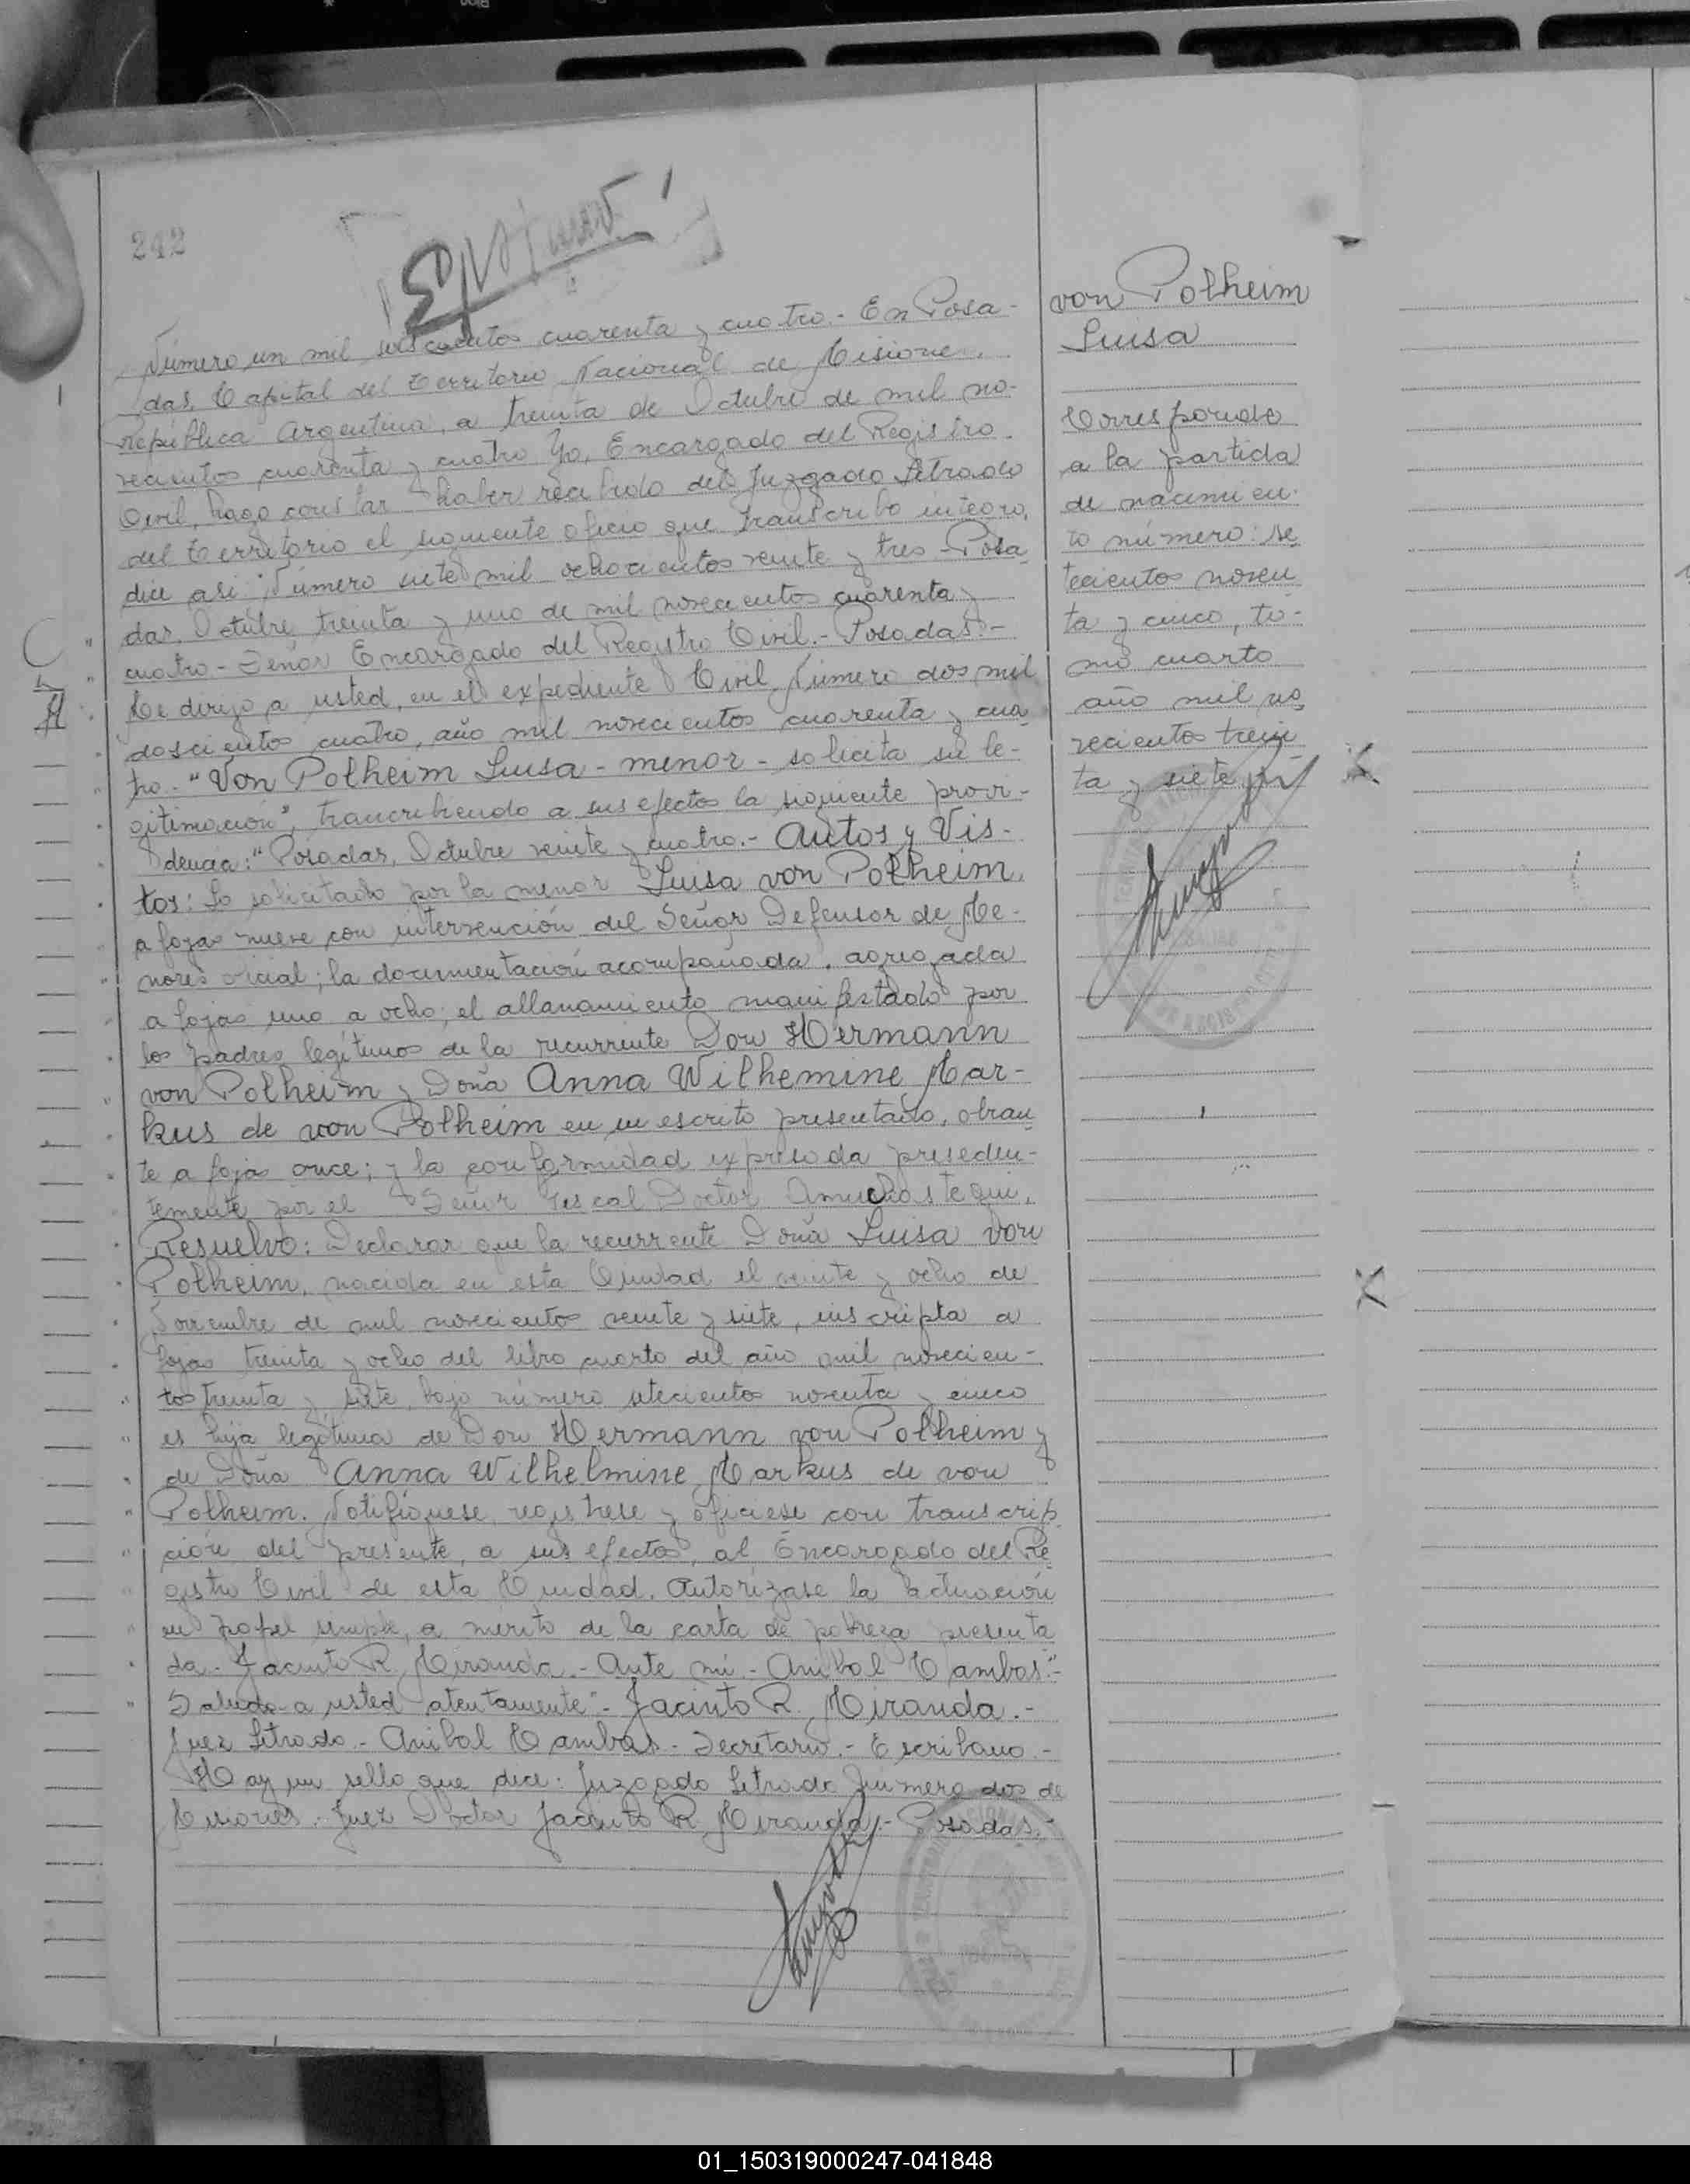 242
Número un mil seiscientos cuarenta y cuatro.- En Posa-
das, Capital del Territorio Nacional de Misiones,
República Argentina, a treinta de Octubre de mil no-
vecientos cuarenta y cuatro Yo, Encargado del Registro
Civil, hago constar haber recibido del Juzgado Letrado
del Territorio el siguiente oficio que transcribo integro,
dice asi: Número siete mil ochocientos veinte y tres - Posa
das, Octubre treinta y uno de mil novecientos cuarenta y
cuatro - Señor Encargado del Registro Civil.- Posadas.-
Me dirijo a usted, en el expediente Civil Número dos mil
doscientos cuatro, año mil novecientos cuarenta y cua
tro. "Von Polheim Luisa - menor - solicita su le-
gitimación", trancribiendo a sus efectos la siguiente provi-
dencia: "Posadas, Octubre veinte y cuatro.- Autos y Vis-
tos: Lo solicitado por la menor Luisa von Polheim,
a fojas nueve con intervención del Señor Defensor de Me-
nores oficial; la documentación acompañada, agregada
a fojas uno a ocho; el allanamiento manifestado por
los padres legítimos de la recurrente Don Hermann
von Polheim y Doña Anna Wilhemine Mar-
kus de von Polheim en su escrito presentado, obran
te a fojas once; y la conformidad expresada preseden-
temente por el Señor Fiscal Doctor Amuchastegui,
Resuelvo: Declarar que la recurrente Doña Luisa von
Polheim, nacida en esta Ciudad el veinte y ocho de
Noviembre de mil novecientos veinte y siete, inscripta a
fojas treinta y ocho del libro cuarto del año mil novecien-
tos treinta y siete, bajo número setecientos noventa y cinco
es hija legítima de Don Hermann von Polheim y
de Doña Anna Wilhelmine Markus de von
Polheim. Notifíquese, regístrese y ofíciese con transcrip
ción del presente, a sus efectos, al Encargado del Re
gistro Civil de esta Ciudad. Autorízase la actuación
en papel simple, a mérito de la carta de pobreza presenta
da.- Jacinto R. Miranda.- Ante mi.- Anibal Cambas".-
Saludo a usted atentamente".- Jacinto R. Miranda.-
Juez Letrado.- Anibal Cambas.- Secretario.- Escribano.-
Hay un sello que dice: Juzgado Letrado Número dos de
Misiones.- Juez Doctor Jacinto R. Miranda.- Posadas.-
von Polheim
Luisa
Corresponde
a la partida
de nacimien-
to número: se
tecientos noven
ta y cinco, to-
mo cuarto
año mil no
vecientos trein
ta y siete
01_150319000247-041848